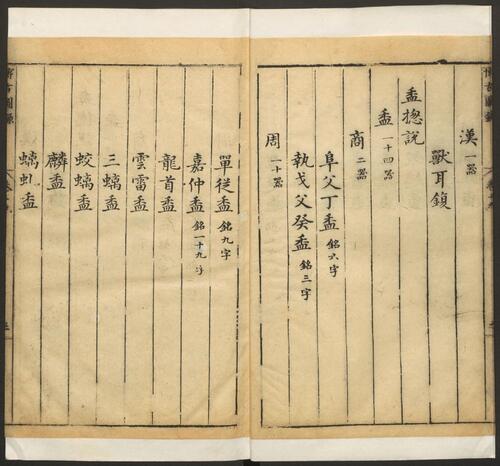 漢一器
獸耳鍑
盉摠說
盉一十四器
商二器
阜父丁盉銘六字
執戈父癸盉銘三字
周一十器
單從盉銘九字
嘉仲盉銘一十九字
龍首盉
雲雷盉
三螭盉
蛟螭盉
麟盉
螭虬盉